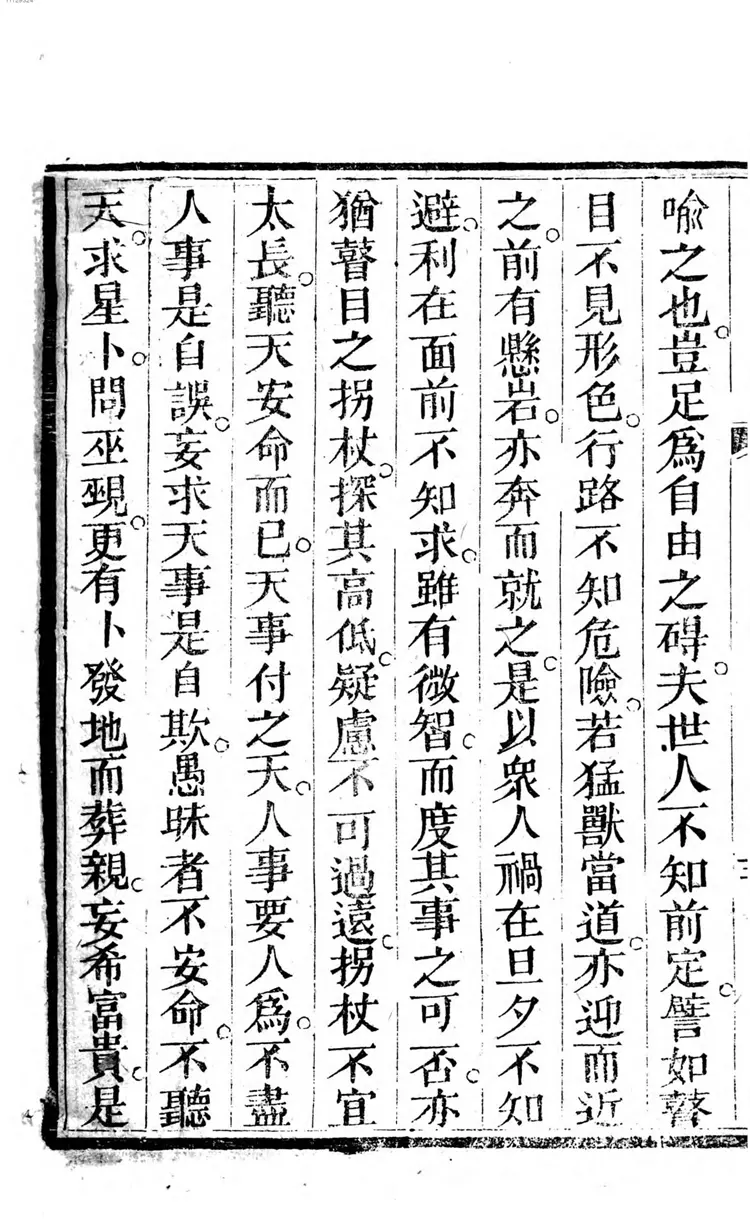 喻之也。豈足爲自由之碍。夫世人不知前定。譬如瞽
目不見形色。行路不知危險。若猛獸當道。亦迎而近
之。前有懸岩。亦奔而就之。是以衆人禍在旦夕不知
避。利在面前不知求。雖有微智。而度其事之可否。亦
猶瞽目之拐杖。探其高低。疑慮不可過遠。拐杖不宜
太長。聽天安命而已。天事付之天。人事要人爲。不盡
人事是自誤。妄求天事是自欺。愚昧者不安命。不聽
天。求星卜。問巫覡。更有卜發地而葬親。妄希富貴。是